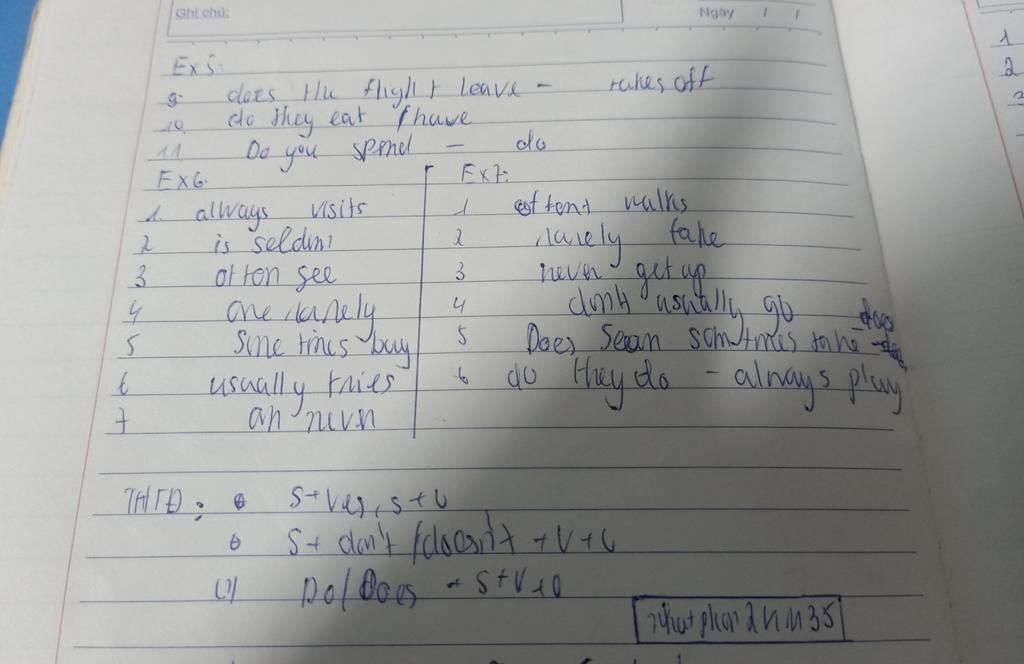 Ghi chú:
Ngày / /
Ex5:
9. does the flight leave - takes off
10. do they eat / have
11 Do you spend - do
Ex6.
1. always visits
2 is seldm
3 often see
4 are rarely
5 Sometimes buy
6 usually tries
7
Ex7:
1 often walks
2 rarely take
3 never get up
4 don't usually go
5 Does Sean somtimes take - does
6 do they do - always play
THTĐ: S+Ves, s+
S+ don't / doesn't + V +
(?) Do/Does + S+V+O
1
2
3